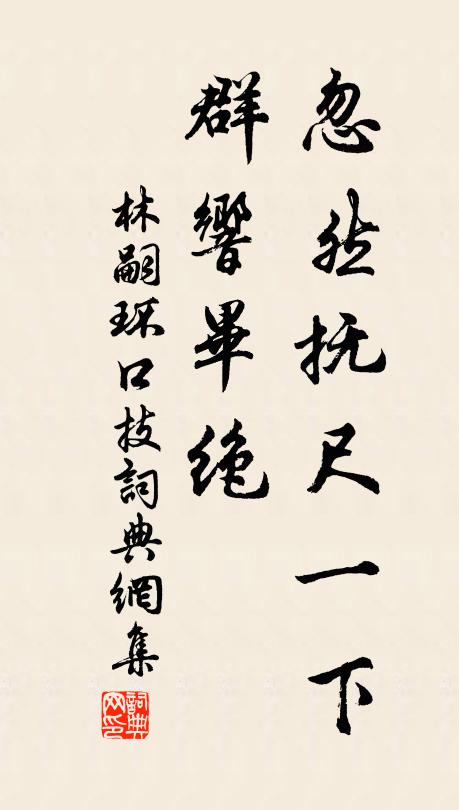 忽然抚尺一下
群響畢絶
林嗣环口技詞典網集
詞典
网印